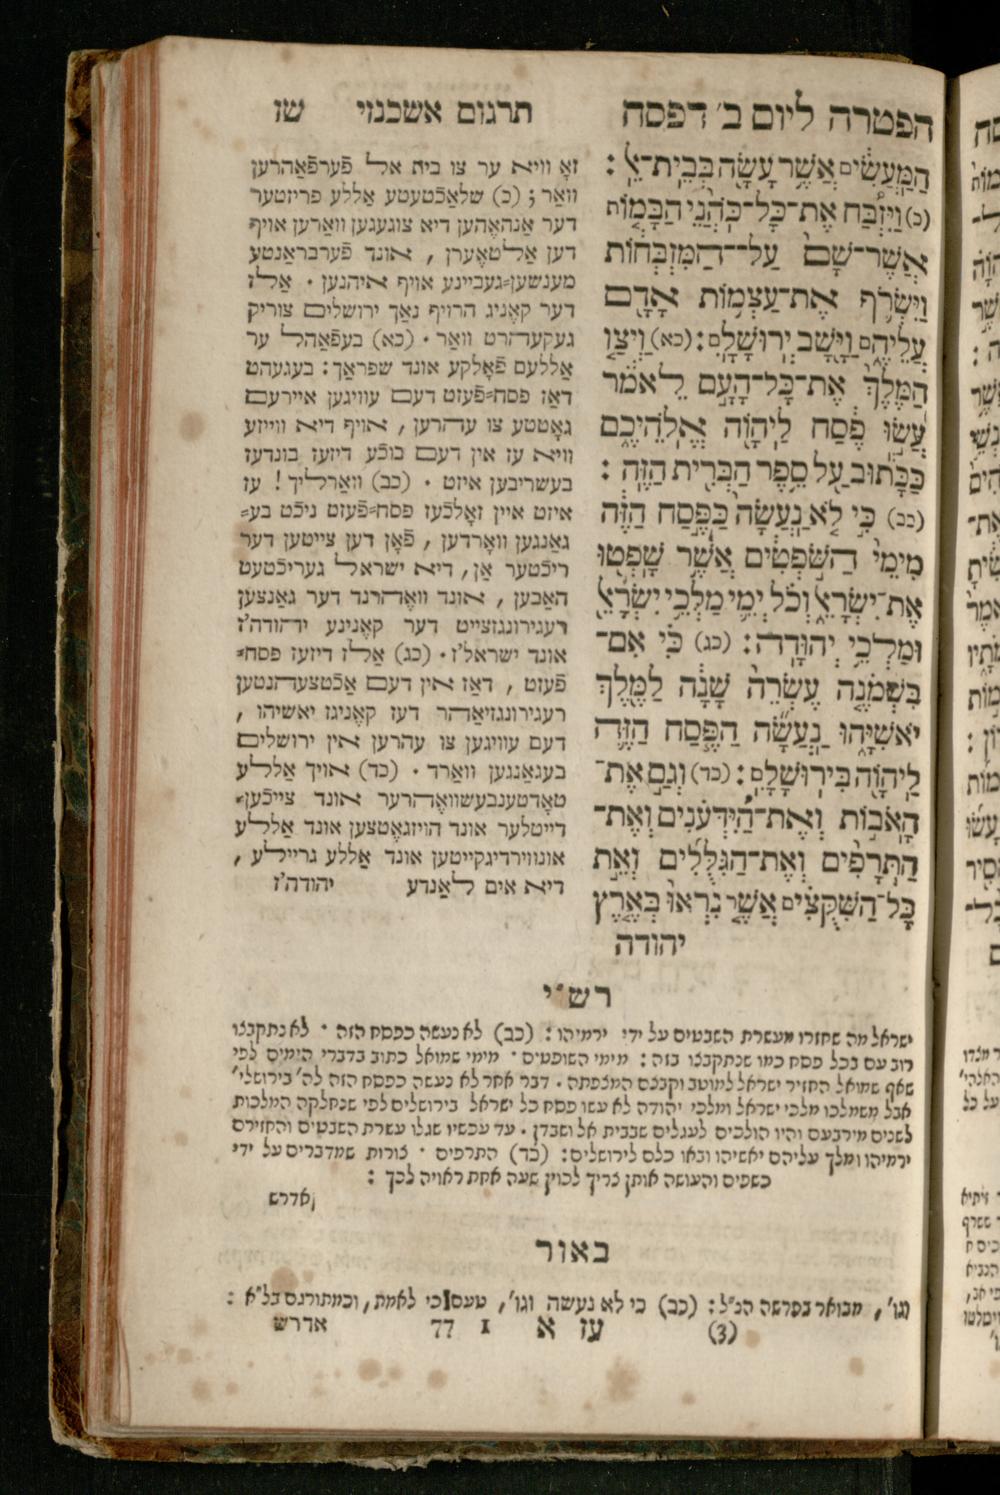 הפטרה ליום ב׳ דפסח
הַמַּעֲשִׂים אֲשֶׁר עָשָׂה בְּבֵית־אֵל :
(כ) וַיִּזְבַּח אֶת־כָּל־כֹּהֲנֵי הַבָּמוֹת
אֲשֶׁר־שָׁם עַל־הַמִּזְבְּחוֹת
וַיִּשְׂרֹף אֶת־עַצְמוֹת אָדָם
עֲלֵיהֶם וַיָּשָׁב יְרוּשָׁלִָם : (כא) וַיְצַו
הַמֶּלֶךְ אֶת־כָּל־הָעָם לֵאמֹר
עֲשׂוּ פֶסַח לַיהוָֹה אֱלֹהֵיכֶם
כַּכָּתוּב עַל סֵפֶר הַבְּרִית הַזֶּה :
(כב) כִּי לֹא נַעֲשָׂה כַּפֶּסַח הַזֶּה
מִימֵי הַשֹּׁפְטִים אֲשֶׁר שָׁפְטוּ
אֶת־יִשְׂרָאֵל וְכֹל יְמֵי מַלְכֵי יִשְׂרָאֵל
וּמַלְכֵי יְהוּדָה : (כג) כִּי אִם־
בִּשְׁמֹנֶה עֶשְׂרֵה שָׁנָה לַמֶּלֶךְ
יֹאשִׁיָּהוּ נַעֲשָׂה הַפֶּסַח הַזֶּה
לַיהוָֹה בִּירוּשָׁלִָם : (כד) וְגַם אֶת־
הָאֹבוֹת וְאֶת־הַיִּדְּעֹנִים וְאֶת־
הַתְּרָפִים וְאֶת־הַגִּלֻּלִים וְאֵת
כָּל־הַשִּׁקֻּצִים אֲשֶׁר נִרְאוּ בְּאֶרֶץ
יהודה
תרגום אשכנזי שו
זאָ וויא ער צו בית אל פֿערפֿאַהרען
וואַר ; (כ) שלאַכֿטעטע אַללע פריזטער
דער אַנהאֶהען דיא צוגעגען וואַרען אויף
דען אַלטאֶרען , אונד פֿערבראַנטע
מענשען=געביינע אויף איהנען . אַלז
דער קאֶניג הרויף נאַך ירושלים צוריק
געקעהרט וואַר . (כא) בעפֿאַהל ער
אַללעם פֿאָלקע אונד שפראַך : בעגעהט
דאַז פסח=פֿעזט דעם עוויגען אייערעם
גאָטטע צו עהרען , אויף דיא ווייזע
וויא עז אין דעם בוכֿע דיזעז בונדעז
בעשריבען איזט . (כב) וואַרליך ! עז
איזט איין זאָלכֿעז פסח=פֿעזט ניכֿט בע=
גאַנגען וואָרדען , פֿאָן דען צייטען דער
ריכֿטער אַן, דיא ישראל געריכֿטעט
האַבען , אונד וואֶהרנד דער גאַנצען
רעגירונגזצייט דער קאֶניגע יהודה'ז
אונד ישראל'ז . (כג) אַלז דיזעז פסח=
פֿעזט , דאַז אין דעם אַכֿטצעהנטען
רעגירונגזיאַהר דעז קאֶניגז יאשיהו ,
דעם עוויגען צו עהרען אין ירושלים
בעגאַנגען וואַרד . (כד) אויך אַללע
טאָדטענבעשוואֶהרער אונד צייכֿען=
דייטלער אונד הויזגאֶטצען אונד אַללע
אונווירדיגקייטען אונד אַללע גרייילע ,
דיא אים לאַנדע יהודה'ז
רש״י
ישראל מה שחזרו מעשרת השבטים על ידי ירמיהו : (כב) לא נעשה כפסח הזה . לא נתקבצו
רוב עם בכל פסח כמו שנתקבצו בזה : מימי השופטים . מימי שמואל כתוב בדברי הימים לפי
שאף שמואל החזיר ישראל למוטב וקבצם המצפתה . דבר אחר לא נעשה כפסח הזה לה׳ בירושלי׳
אבל משמלכו מלכי ישראל ומלכי יהודה לא עשו פסח כל ישראל בירושלים לפי שנחלקה המלכות
לשנים מירבעם והיו הולכים לעגלים שבבית אל ושבדן . עד עכשיו שגלו עשרת השבטים והחזירם
ירמיהו ומלך עליהם יאשיהו ובאו כלם לירושלים : (כד) התרפים . צורות שמדברים על ידי
כשפים והעושה אותן צריך לכוין שעה אחת ראויה לכך :
אדרש
באור
וגו׳, מבואר בפרשה הנ״ל : (כב) כי לא נעשה וגו׳, טעם כי לאמת, וכמתורגם בל״א :
(3) עז א 1 77 אדרש